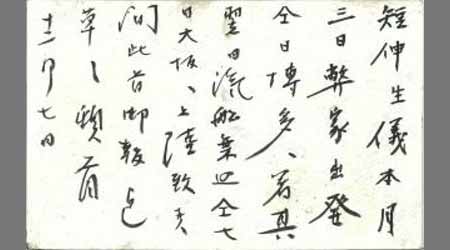 短伸生儀本月
三日弊家出発
仝日博多ヘ着其
翌日汽船乗込仝七
日大坂ヘ上陸致候
間此旨御報迄
草々頓首
十二月七日